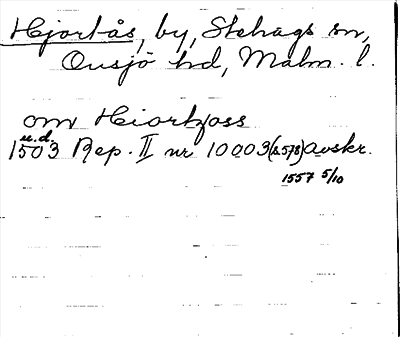 Hjortås, by, Stehags sn,
Onsjö hd, Malm. l.
om Hiortzass
u.d.
1503 Rep. II nr 10003 (s.578) avskr.
1557 5/10